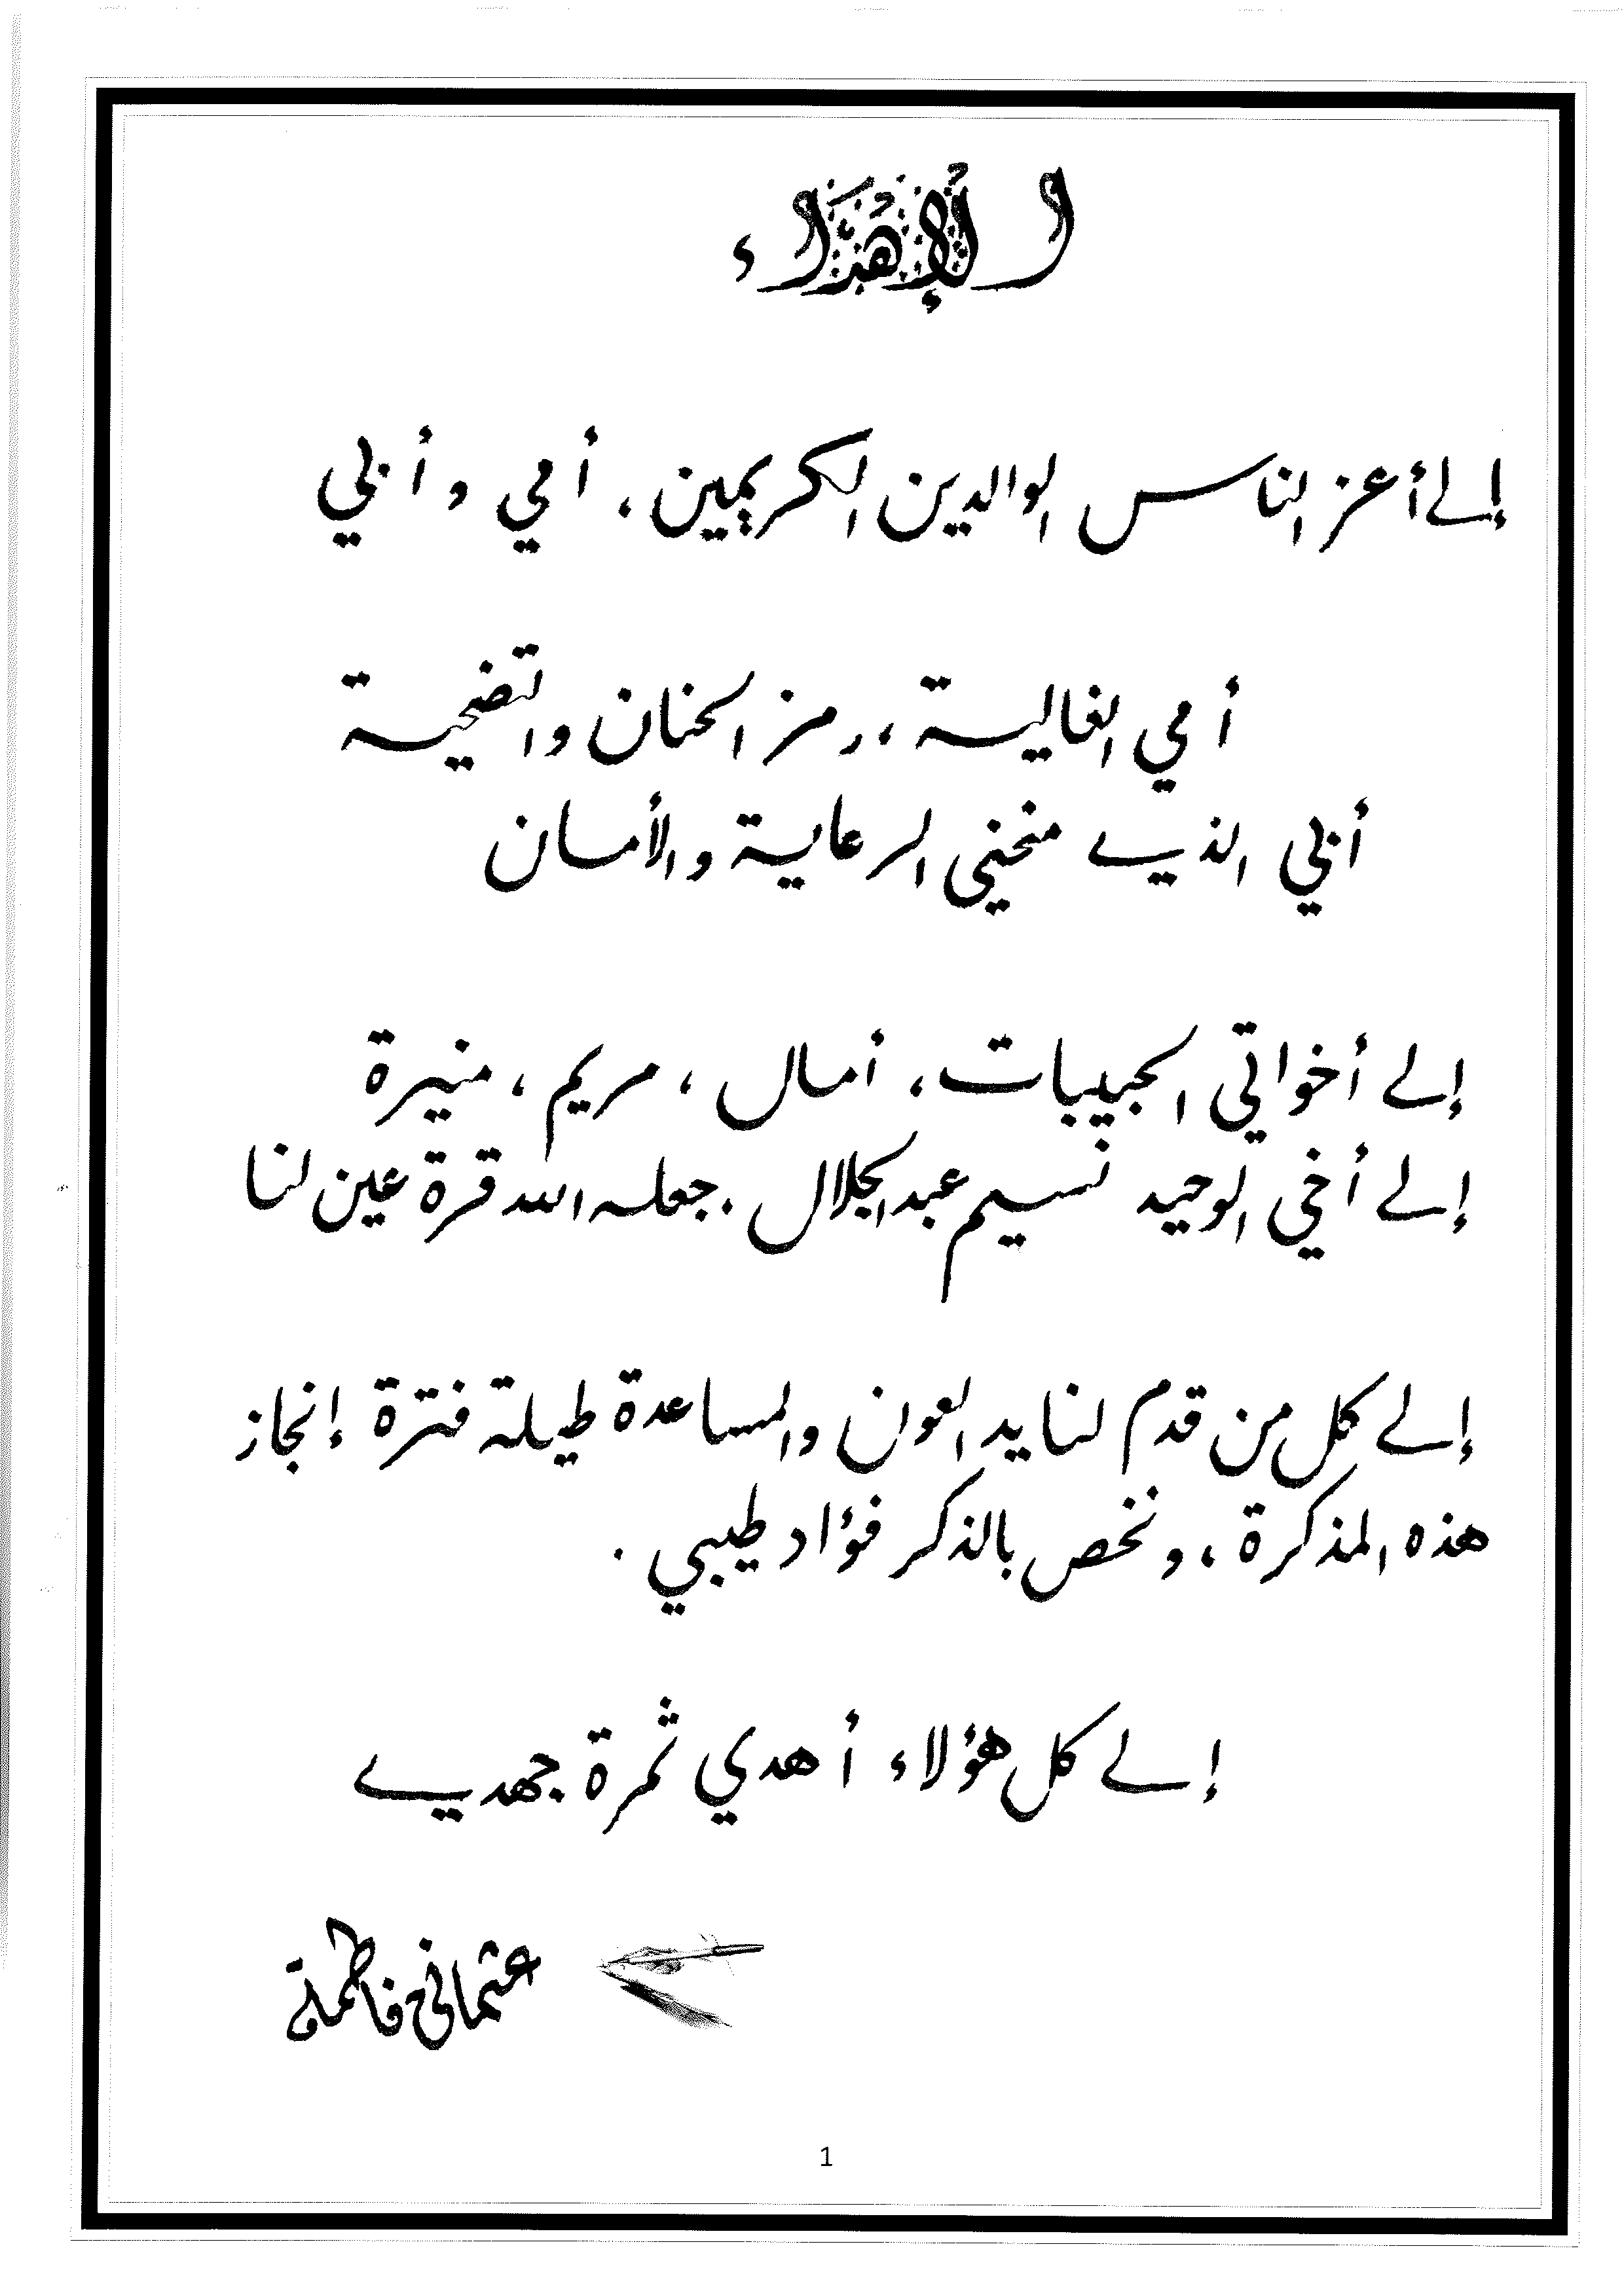 الإهداء
إلى أعز الناس الوالدين الكريمين، أمي و أبي
أمي الغالية، رمز الحنان والتضحية
أبي الذي منحني الرعاية والأمان
إلى أخواتي الحبيبات، أمال، مريم، منيرة
إلى أخي الوحيد نسيم عبد الجلال. جعله الله قرة عين لنا
إلى كل من قدم لنا يد العون والمساعدة طيلة فترة إنجاز
هذه المذكرة، ونخص بالذكر فؤاد طيبي.
إلى كل هؤلاء أهدي ثمرة جهدي
عثماني فاطمة
1